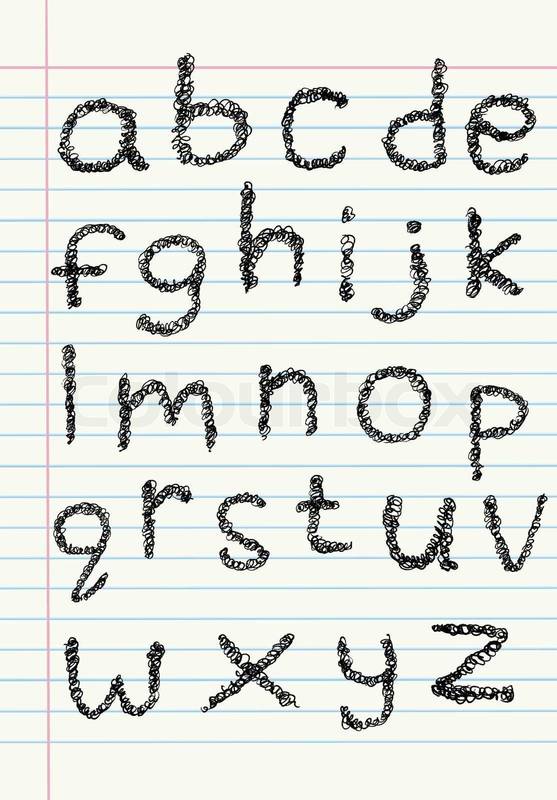 a b c d e
f g h i j k
l m n o p
q r s t u v
w x y z
Colourbox